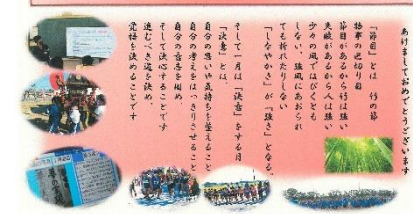 あけましておめでとうございます
「節目」とは 竹の節
物事の区切り目
節目があるから竹は強い
失敗があるから人は強い
少々の風ではびくとも
しない、強風にあおられ
ても折れたりしない
「しなやかさ」が「強さ」となる。
そして一月は「決意」をする月
「決意」とは、
自分の思いや気持ちを整えること
自分の考えをはっきりさせること
自分の意志を固め
そして決心することです
進むべき道を決め、
覚悟を決めることです